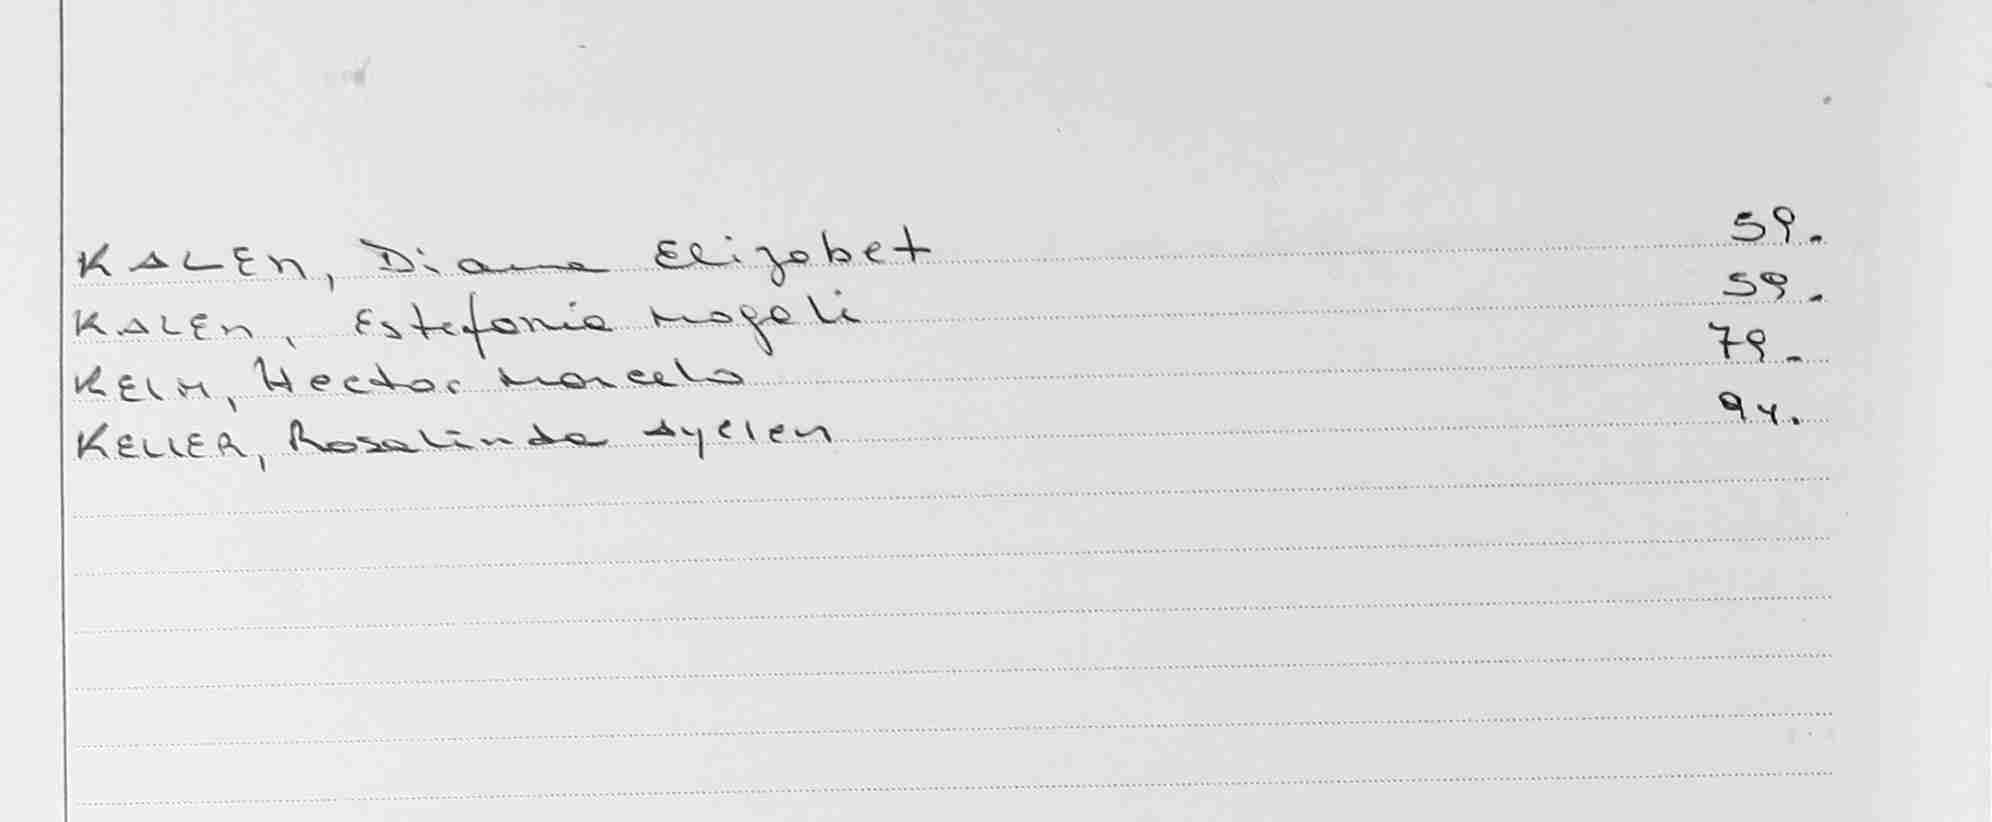 KALEN, Diana Elizabet 59.
KALEN, Estefania Magali 59.
KELM, Hector Marcelo 79.
KELLER, Rosalinda Ayelen 94.